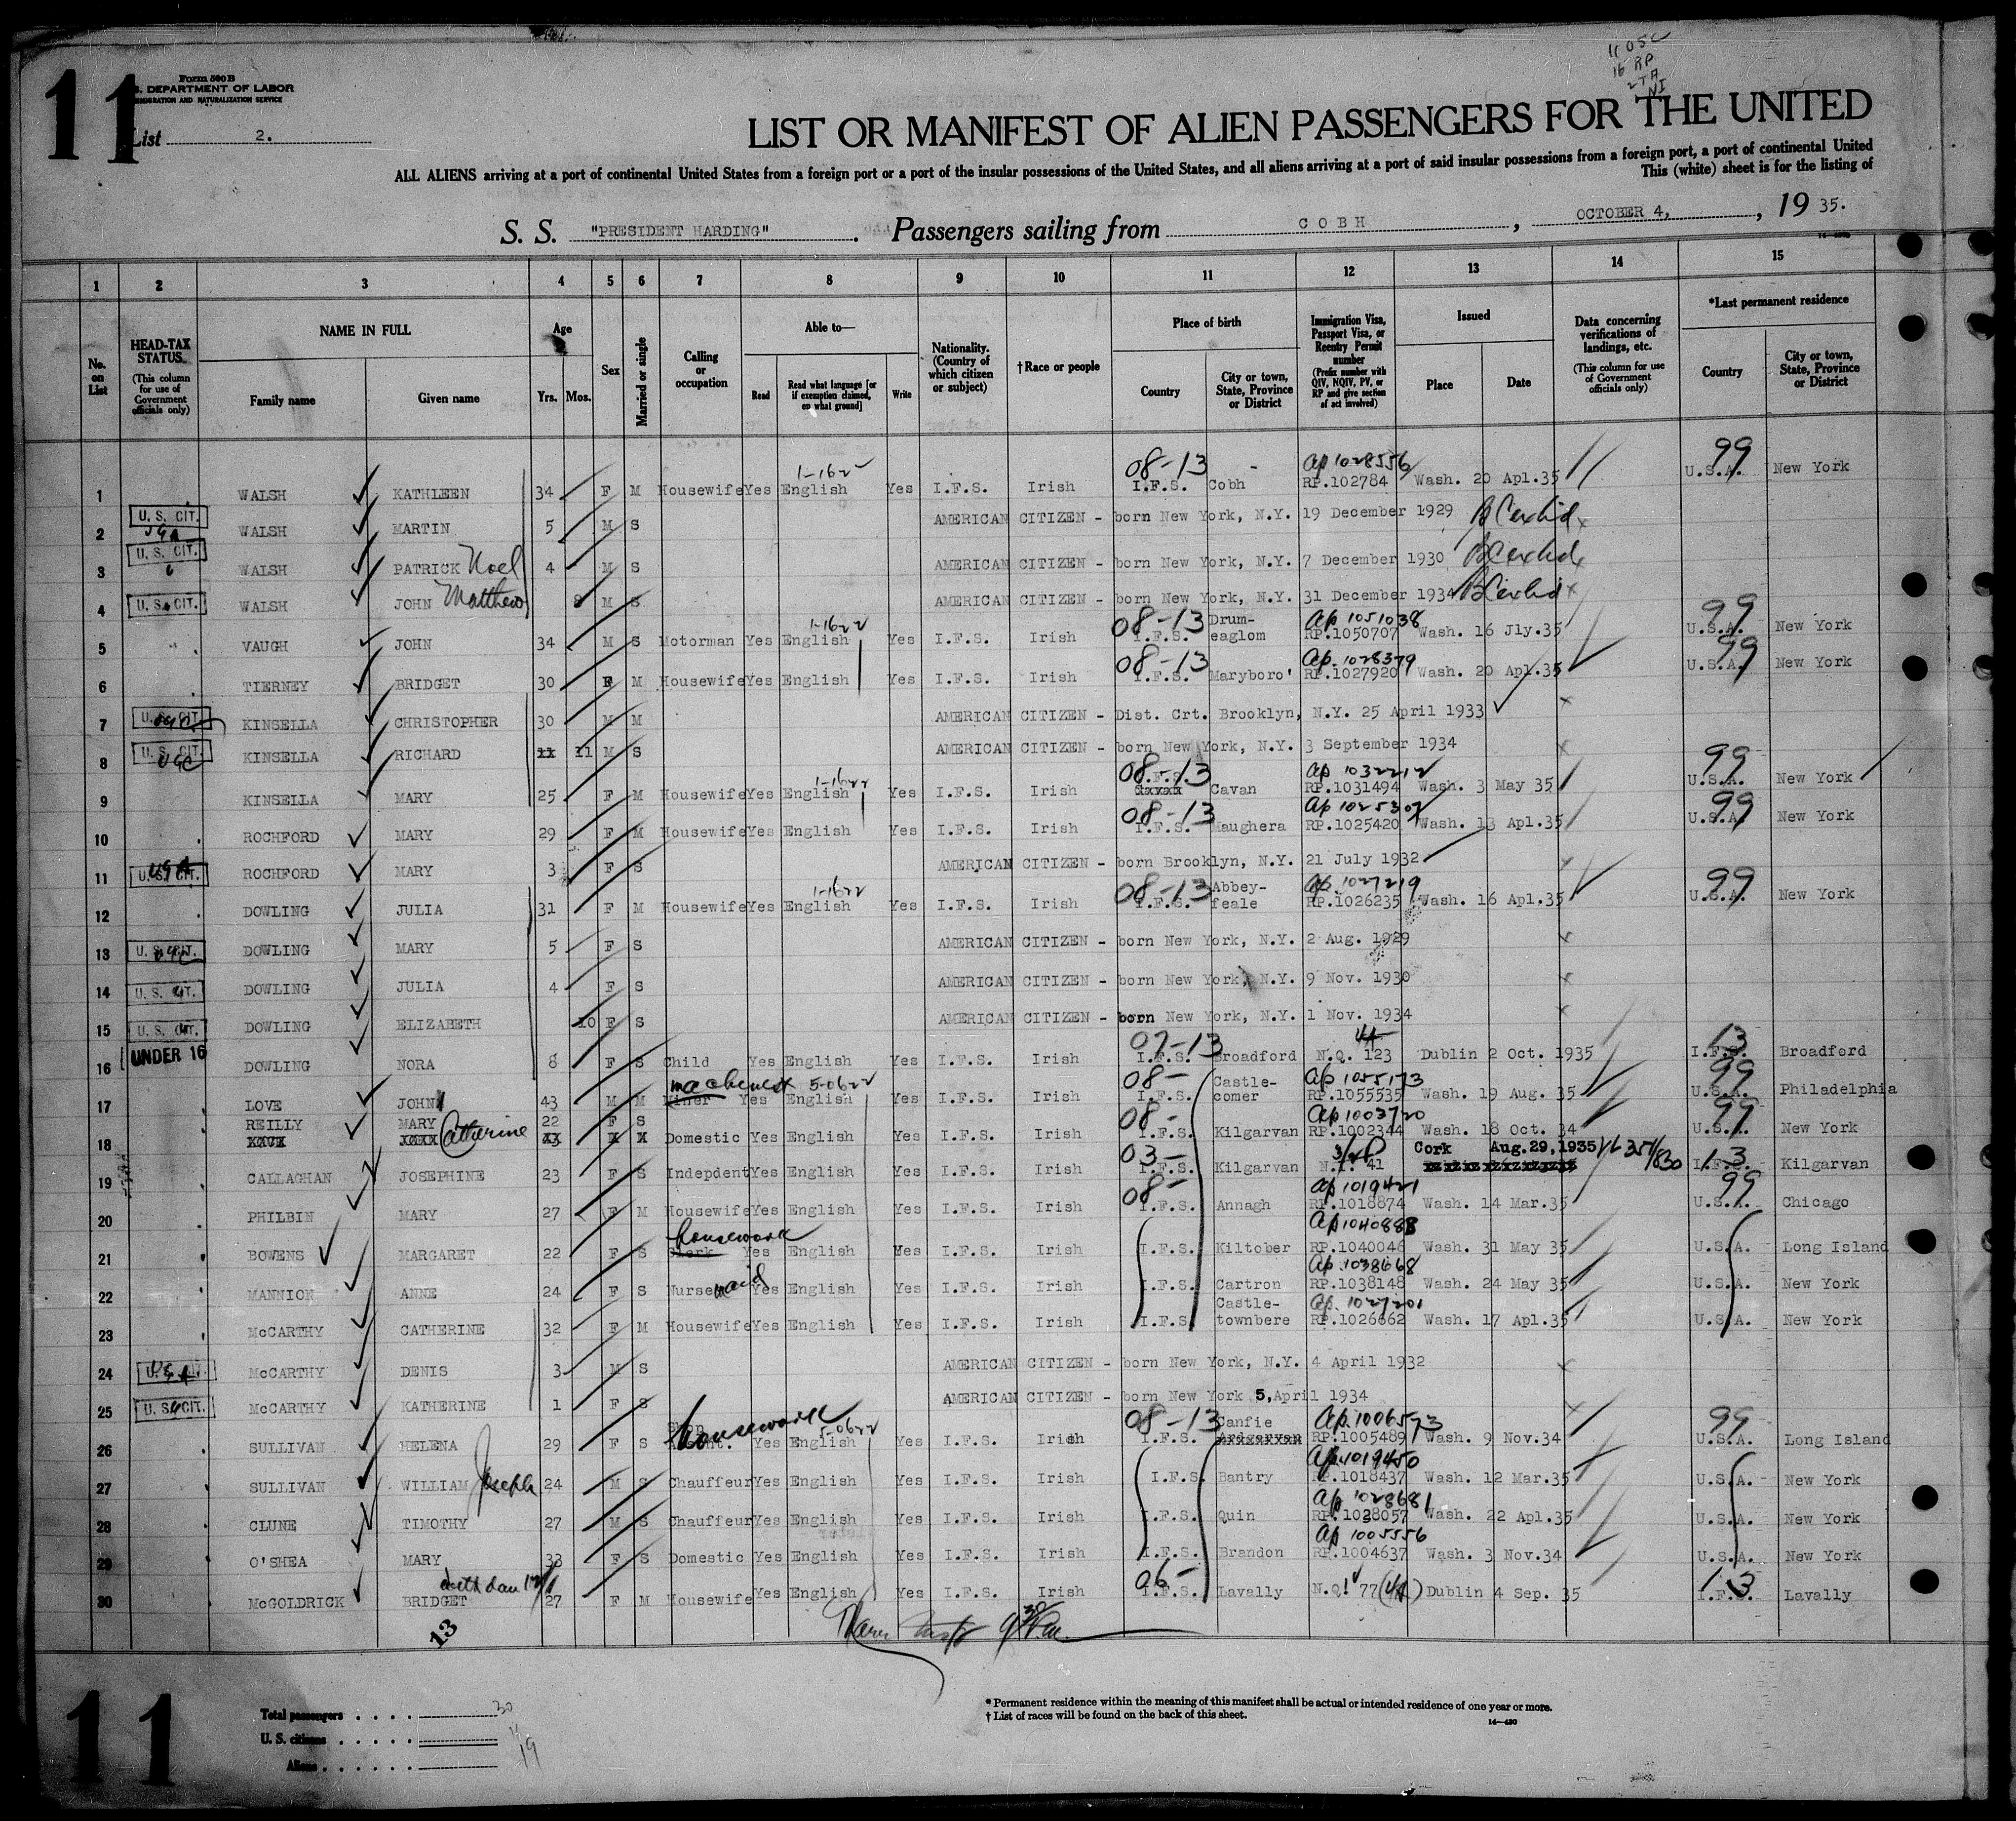 11
Form 500 B
DEPARTMENT OF LABOR
IMMIGRATION AND NATURALIZATION SERVICE
List 2.
16 RP
LIST OR MANIFEST OF ALIEN PASSENGERS FOR THE UNITED
ALL ALIENS arriving at a port of continental United States from a foreign port or a port of the insular possessions of the United States, and all aliens arriving at a port of said insular possessions from a foreign port, a port of continental United
This (white) sheet is for the listing of
S. S. "PRESIDENT HARDING" . Passengers sailing from COBH , OCTOBER 4, , 19 35.
1 2 3 4 5 6 7 8 9 10 11 12 13 14 15
No. on List
HEAD-TAX STATUS (This column for use of Government officials only)
NAME IN FULL Family name Given name
Age Yrs. Mos.
Sex
Married or single
Calling or occupation
Able to— Read Read what language [or if exemption claimed, on what ground] Write
Nationality. (Country of which citizen or subject)
†Race or people
Place of birth Country City or town, State, Province or District
Immigration Visa, Passport Visa, or Reentry Permit number (Prefix number with QIV, NQIV, PV, or RP and give section of act involved)
Issued Place Date
Data concerning verifications of landings, etc. (This column for use of Government officials only)
*Last permanent residence Country City or town, State, Province or District
1-1622 08-13 - ap 1028556 99
1 WALSH KATHLEEN 34 F M Housewife Yes English Yes I.F.S. Irish I.F.S. Cobh RP.102784 Wash. 20 Apl.35 U.S.A. New York
2 U. S. CIT. WALSH MARTIN 5 M S AMERICAN CITIZEN - born New York, N.Y. 19 December 1929
3 U. S. CIT. WALSH PATRICK Noel 4 M S AMERICAN CITIZEN - born New York, N.Y. 7 December 1930
4 U. S. CIT. WALSH JOHN Matthew M S AMERICAN CITIZEN - born New York, N.Y. 31 December 1934
1-1622 08-13 Drum- ap 1051038 99
5 VAUGH JOHN 34 M S Motorman Yes English Yes I.F.S. Irish I.F.S. eaglom RP.1050707 Wash. 16 Jly.35 U.S.A. New York
08-13 ap. 1028379 99
6 TIERNEY BRIDGET 30 F M Housewife Yes English Yes I.F.S. Irish I.F.S. Maryboro' RP.1027920 Wash. 20 Apl.35 U.S.A. New York
7 U. S. CIT. KINSELLA CHRISTOPHER 30 M M AMERICAN CITIZEN - Dist. Crt. Brooklyn, N.Y. 25 April 1933
8 U. S. CIT. KINSELLA RICHARD 11 M S AMERICAN CITIZEN - born New York, N.Y. 3 September 1934
1-1622 08-13 I.F.S. ap 1032212 99
9 KINSELLA MARY 25 F M Housewife Yes English Yes I.F.S. Irish Cavan RP.1031494 Wash. 3 May 35 U.S.A. New York
08-13 ap 1025307 99
10 ROCHFORD MARY 29 F M Housewife Yes English Yes I.F.S. Irish I.F.S. Maughera RP.1025420 Wash. 13 Apl.35 U.S.A. New York
11 U. S. CIT. ROCHFORD MARY 3 F S AMERICAN CITIZEN - born Brooklyn, N.Y. 21 July 1932
1-1622 08-13 Abbey- ap. 1027219 99
12 DOWLING JULIA 31 F M Housewife Yes English Yes I.F.S. Irish I.F.S. feale RP.1026235 Wash. 16 Apl.35 U.S.A. New York
13 U. S. CIT. DOWLING MARY 5 F S AMERICAN CITIZEN - born New York, N.Y. 2 Aug. 1929
14 U. S. CIT. DOWLING JULIA 4 F S AMERICAN CITIZEN - born New York, N.Y. 9 Nov. 1930
15 U. S. CIT. DOWLING ELIZABETH 10 F S AMERICAN CITIZEN - born New York, N.Y. 1 Nov. 1934
07-13 13
16 UNDER 16 DOWLING NORA 8 F S Child Yes English Yes I.F.S. Irish I.F.S. Broadford N.Q. 123 Dublin 2 Oct. 1935 I.F.S. Broadford
machinest 5-0622 08- Castle- ap 1055173 99
17 LOVE JOHN 43 M M Miner Yes English Yes I.F.S. Irish I.F.S. comer RP.1055535 Wash. 19 Aug. 35 U.S.A. Philadelphia
REILLY MARY 22 F S 08- ap 1003720 99
18 Catherine Domestic Yes English Yes I.F.S. Irish I.F.S. Kilgarvan RP.1002344 Wash. 18 Oct. 34 U.S.A. New York
03- Cork Aug.29,1935 13
19 CALLAGHAN JOSEPHINE 23 F S Indepdent Yes English Yes I.F.S. Irish I.F.S. Kilgarvan 41 I.F.S. Kilgarvan
08- ap 1019421 99
20 PHILBIN MARY 27 F M Housewife Yes English Yes I.F.S. Irish I.F.S. Annagh RP.1018874 Wash. 14 Mar.35 U.S.A. Chicago
housework ap 1040888
21 BOWENS MARGARET 22 F S Clerk Yes English Yes I.F.S. Irish I.F.S. Kiltober RP.1040046 Wash. 31 May 35 U.S.A. Long Island
ap. 1038668
22 MANNION ANNE 24 F S Nurse maid Yes English Yes I.F.S. Irish I.F.S. Cartron RP.1038148 Wash. 24 May 35 U.S.A. New York
Castle- ap. 1027201
23 McCARTHY CATHERINE 32 F M Housewife Yes English Yes I.F.S. Irish I.F.S. townbere RP.1026662 Wash. 17 Apl.35 U.S.A. New York
24 McCARTHY DENIS 3 M S AMERICAN CITIZEN - born New York, N.Y. 4 April 1932
25 U. S. CIT. McCARTHY KATHERINE 1 F S AMERICAN CITIZEN - born New York 5,April 1934
housework 5-0622 08-13 Canfie ap. 1006573 99
26 SULLIVAN HELENA 29 F S Yes English Yes I.F.S. Irish I.F.S. RP.1005489 Wash. 9 Nov.34 U.S.A. Long Island
ap 1019450
27 SULLIVAN WILLIAM Joseph 24 M S Chauffeur Yes English Yes I.F.S. Irish I.F.S. Bantry RP.1018437 Wash. 12 Mar.35 U.S.A. New York
ap 1028681
28 CLUNE TIMOTHY 27 M S Chauffeur Yes English Yes I.F.S. Irish I.F.S. Quin RP.1028057 Wash. 22 Apl.35 U.S.A. New York
ap 1005556
29 O'SHEA MARY 33 F S Domestic Yes English Yes I.F.S. Irish I.F.S. Brandon RP.1004637 Wash. 3 Nov.34 U.S.A. New York
06- 13
30 McGOLDRICK BRIDGET 27 F M Housewife Yes English Yes I.F.S. Irish I.F.S. Lavally N.Q. 77 Dublin 4 Sep. 35 I.F.S. Lavally
13
11
Total passengers . . . . 30
U. S. citizens . . . . . 11
Aliens . . . . . . 19
* Permanent residence within the meaning of this manifest shall be actual or intended residence of one year or more.
† List of races will be found on the back of this sheet.
14—430